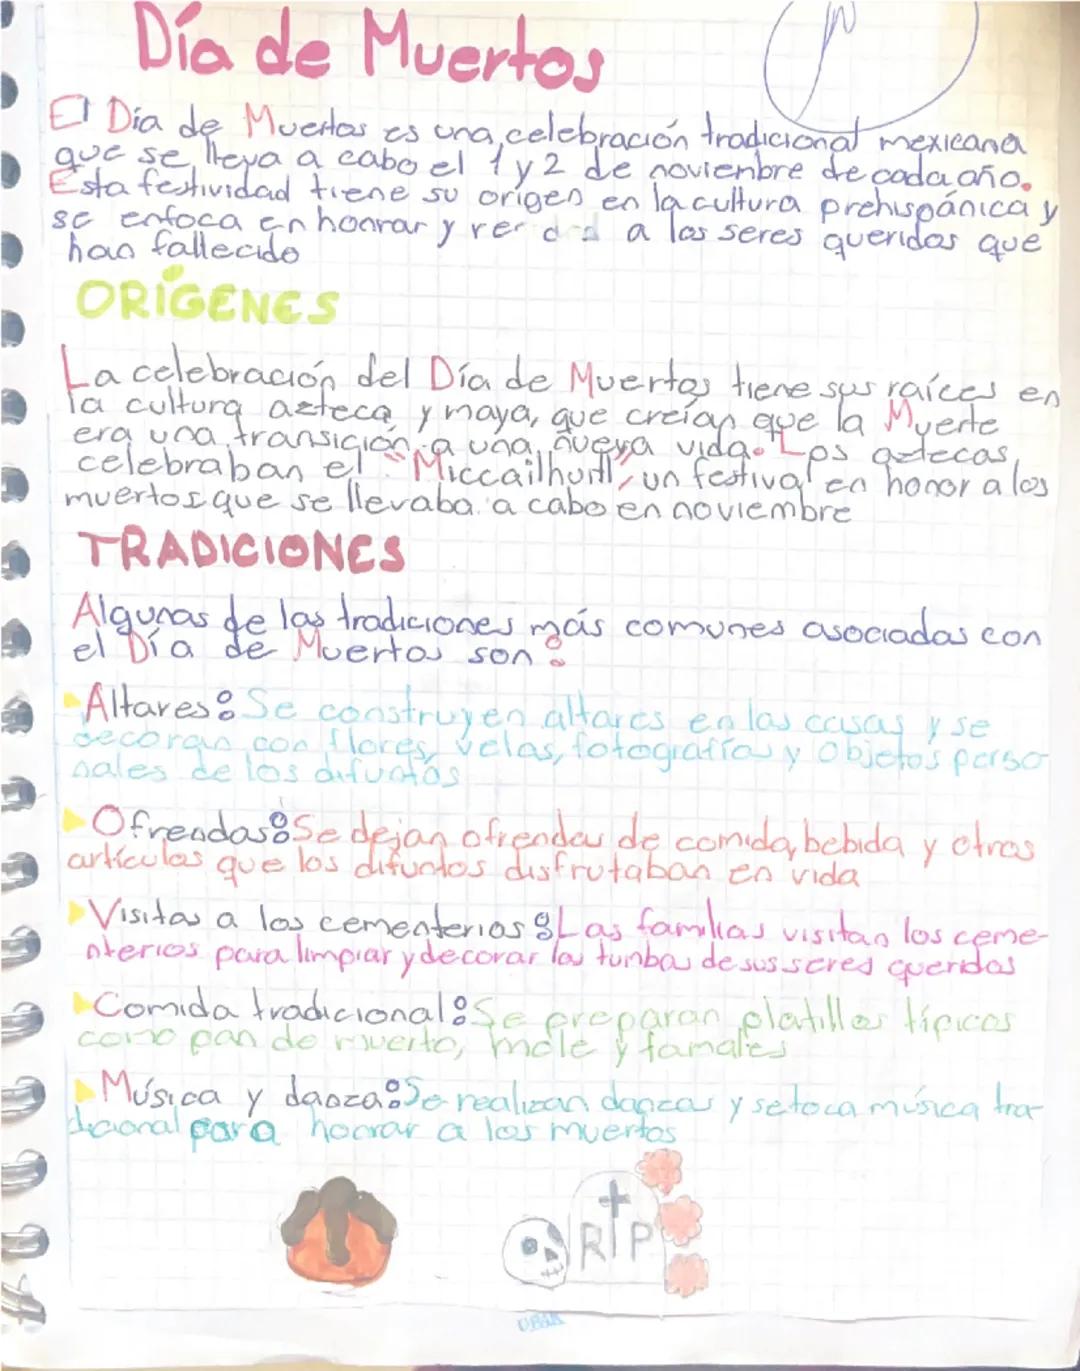 Día de Muertos
El Día de Muertos es una celebración tradicional mexicana
que se lleva a cabo el 1 y 2 de noviembre de cada año.
Esta festividad tiene su origen en la cultura prehispánica y
se enfoca en honrar y a los seres queridos que
han fallecido
ORÍGENES
La celebración del Día de Muertos tiene sus raíces en
la cultura azteca y maya, que creían que la Muerte
era una transición a una nueva vida. Los aztecas
celebraban el "Miccailhuitl", un festival en honor a los
muertos que se llevaba a cabo en noviembre
TRADICIONES
Algunas de las tradiciones más comunes asociadas con
el Día de Muertos son:
Altares: Se construyen altares en las casas y se
decoran con flores, velas, fotografías y objetos perso
nales de los difuntos
Ofrendas: Se dejan ofrendas de comida, bebida y otros
artículos que los difuntos disfrutaban en vida
Visitas a los cementerios: Las familias visitan los ceme-
nterios para limpiar y decorar las tumbas de sus seres queridos
Comida tradicional: Se preparan platillos típicos
como pan de muerto, mole y tamales
Música y danza: Se realizan danzas y se toca música tra-
dicional para honrar a los muertos
RIP